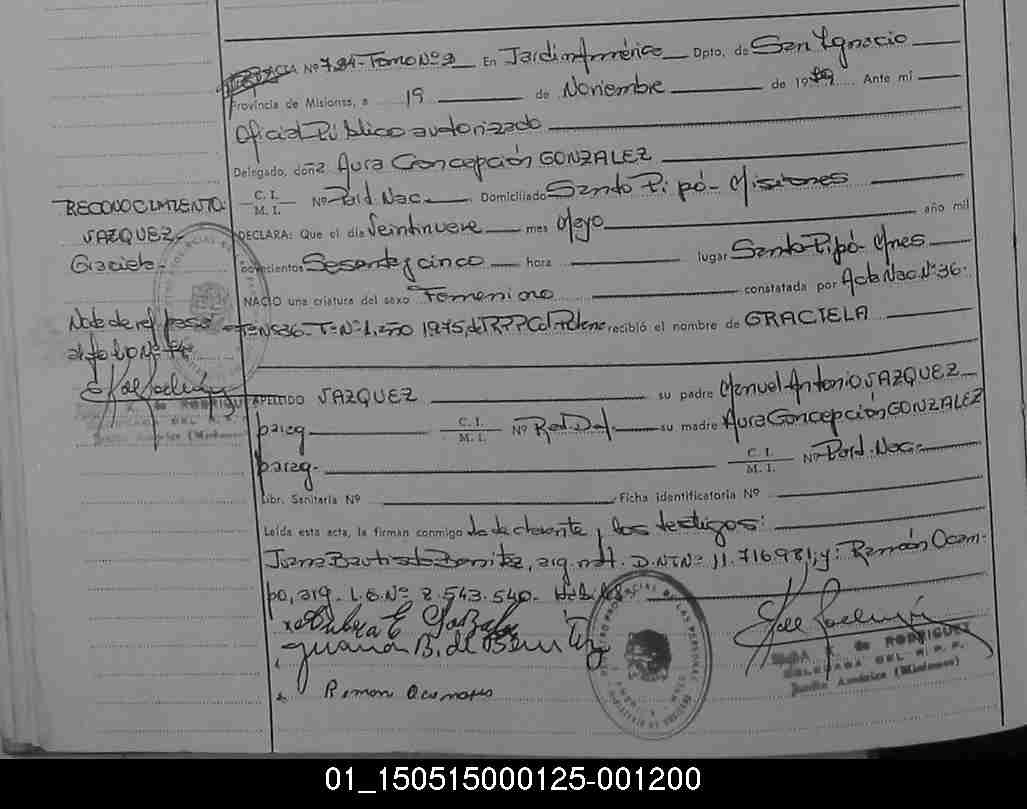 ACTA Nº 794-Tomo Nº 2 En Jardín América Dpto. de San Ignacio
Provincia de Misiones, a 19 de Noviembre de 19 Ante mí
Oficial Público autorizado
Delegado, doña Aura Concepción GONZALEZ
C. I. / M. I. Nº Pard Nac. Domiciliado Santo Pipó - Misiones
DECLARA: Que el día Veintinueve mes Mayo año mil
novecientos Sesenta y cinco hora lugar Santo Pipó - Mnes
NACIO una criatura del sexo Femenino constatada por Acta Nac. Nº 36-
Nº 36 - Tº Nº 1, año 1975, de recibió el nombre de GRACIELA
APELLIDO VAZQUEZ su padre Manuel Antonio VAZQUEZ
parag C. I. / M. I. Nº su madre Aura Concepción GONZALEZ
parag. C. I. / M. I. Nº Pard. Nac.
Libr. Sanitaria Nº Ficha identificatoria Nº
Leída esta acta, la firman conmigo la declarante y los testigos:
Juana Bautista Benitez, arg. nat. D.N.I Nº 11.716.981, y: Ramón Ocam-
po, arg. L.E. Nº 2.543.540.
Juana B. de Benitez
Ramon Ocampo
RECONOCIMIENTO:
VAZQUEZ
Graciela.
Nota de ref. pasa
al folio Nº
de RODRIGUEZ
DELEGADA DEL R. P. P.
Jardín América (Misiones)
de RODRIGUEZ
DEL R. P.
Jardín América (Misiones)
01_150515000125-001200